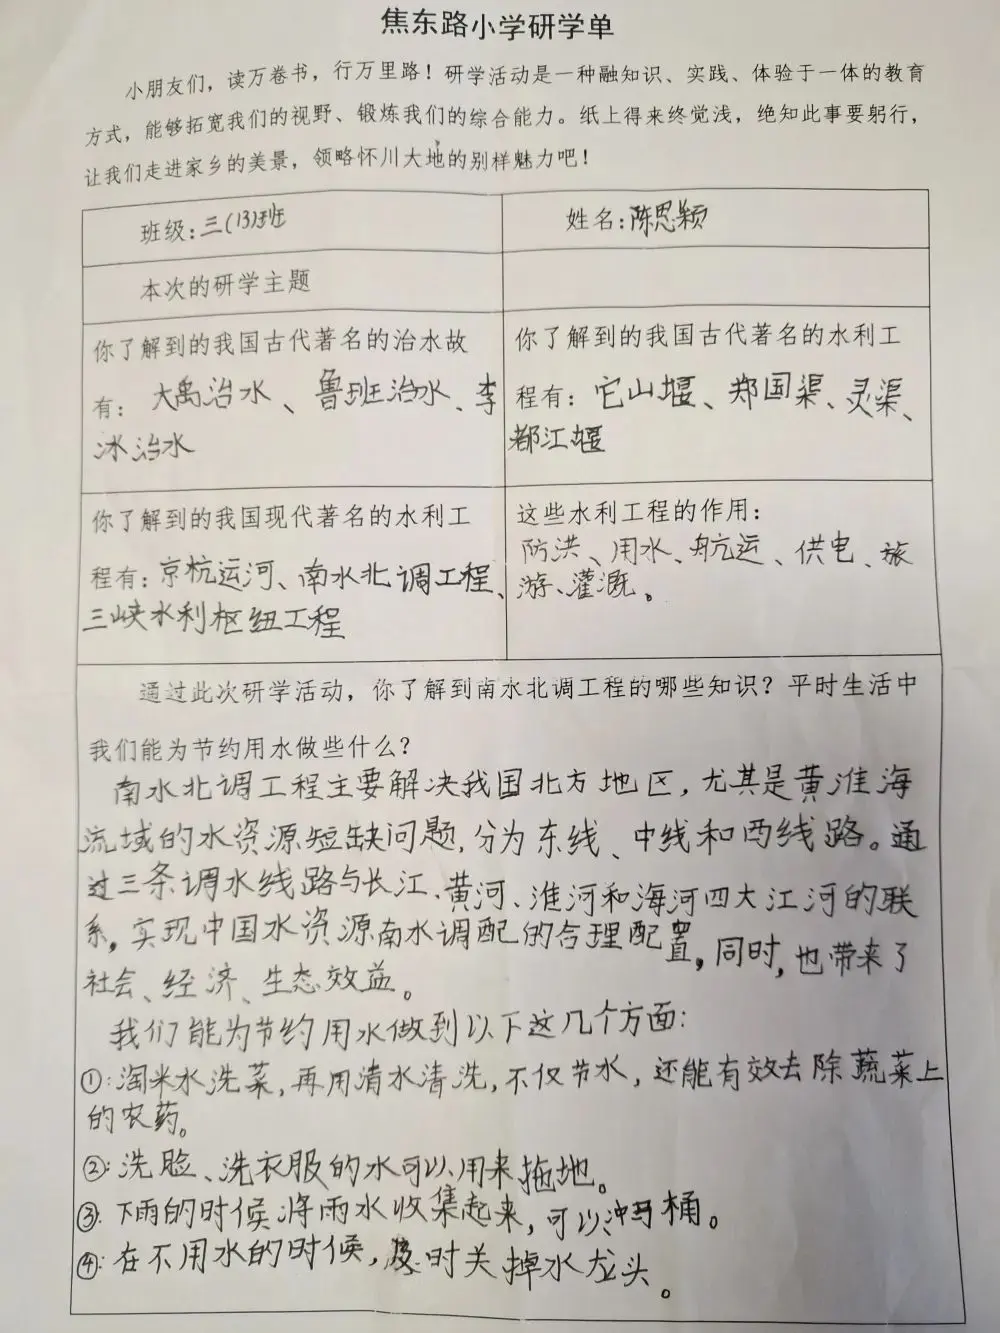 焦东路小学研学单
小朋友们，读万卷书，行万里路！研学活动是一种融知识、实践、体验于一体的教育
方式，能够拓宽我们的视野、锻炼我们的综合能力。纸上得来终觉浅，绝知此事要躬行，
让我们走进家乡的美景，领略怀川大地的别样魅力吧！
班级：三(13)班
姓名：陈思颖
本次的研学主题
你了解到的我国古代著名的治水故
有：大禹治水、鲁班治水、李
冰治水
你了解到的我国古代著名的水利工
程有：它山堰、郑国渠、灵渠、
都江堰
你了解到的我国现代著名的水利工
程有：京杭运河、南水北调工程、
三峡水利枢纽工程
这些水利工程的作用：
防洪、用水、航运、供电、旅
游、灌溉。
通过此次研学活动，你了解到南水北调工程的哪些知识？平时生活中
我们能为节约用水做些什么？
南水北调工程主要解决我国北方地区，尤其是黄淮海
流域的水资源短缺问题，分为东线、中线和西线路。通
过三条调水线路与长江、黄河、淮河和海河四大江河的联
系，实现中国水资源南水调配的合理配置，同时，也带来了
社会、经济、生态效益。
我们能为节约用水做到以下这几个方面：
①：淘米水洗菜，再用清水清洗，不仅节水，还能有效去除蔬菜上
的农药。
②：洗脸、洗衣服的水可以用来拖地。
③：下雨的时候将雨水收集起来，可以冲马桶。
④：在不用水的时候，及时关掉水龙头。